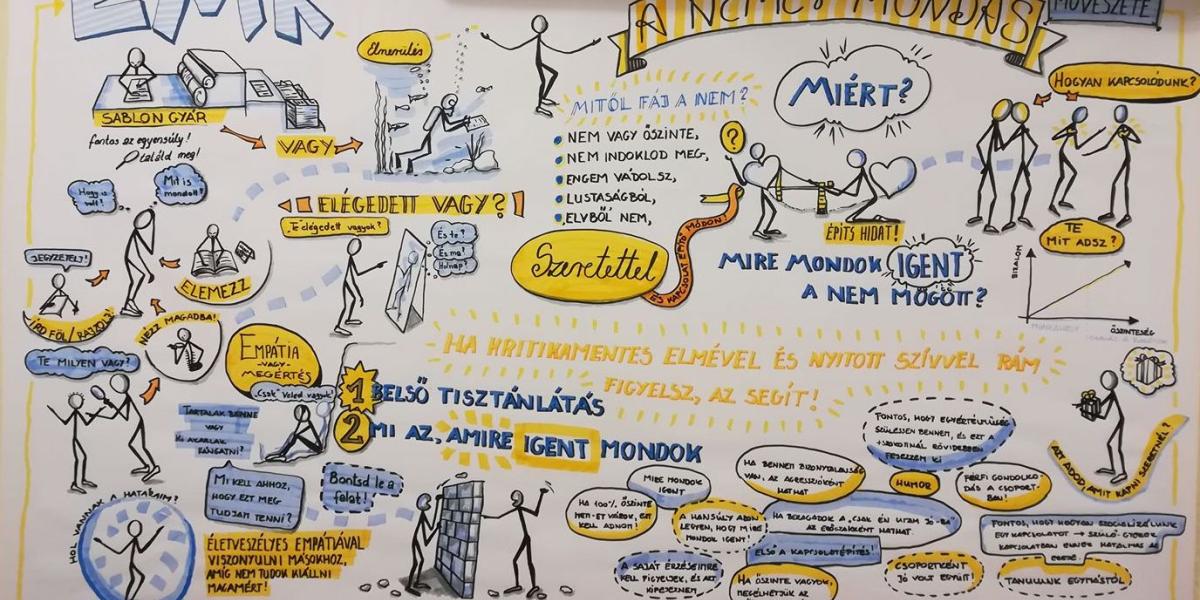 EMK
A NEMET MONDÁS
MŰVÉSZETE
SABLON GYÁR
fontos az egyensúly!
találd meg!
VAGY
Elmerülés
MITŐL FÁJ A NEM?
NEM VAGY ŐSZINTE,
NEM INDOKLOD MEG,
ENGEM VÁDOLSZ,
LUSTASÁGBÓL,
ELVBŐL NEM,
Szeretettel
ÉS KAPCSOLAT ÉPÍTŐ MÓDON!
MIÉRT?
?
ÉPÍTS HIDAT!
HOGYAN KAPCSOLÓDUNK?
TE
MIT ADSZ?
BIZALOM
ŐSZINTESÉG
MIRE MONDOK IGENT
A NEM MÖGÖTT?
Mit is
mondott?
ELÉGEDETT VAGY?
"Te elégedett vagyok?
És te?
És ma?
Holnap?
JEGYZETELJ!
ÍRD FÖL/RAJZOLJ
ELEMEZZ
NÉZZ MAGADBA!
TE MILYEN VAGY?
EMPÁTIA
-VAGY-
MEGÉRTÉS
"Csak" veled vagyok!
TARTALAK BENNE
VAGY
KI AKARLAK
RÁNGATNI?
HA KRITIKAMENTES ELMÉVEL ÉS NYITOTT SZÍVVEL RÁM
FIGYELSZ, AZ SEGÍT!
1 BELSŐ TISZTÁNLÁTÁS
2 MI AZ, AMIRE IGENT MONDOK
HOL VANNAK A HATÁRAIM?
MI KELL AHHOZ,
HOGY EZT MEG
TUDJAM TENNI?
Bontsd le a
falat!
ÉLETVESZÉLYES EMPÁTIÁVAL
VISZONYULNI MÁSOKHOZ,
AMÍG NEM TUDOK KIÁLLNI
MAGAMÉRT!
HA 100% ŐSZINTE
KELL ADNOM!
MIRE MONDOK
IGENT
A HANSÚLY AZON
LEGYEN, HOGY MIRE
MONDOK IGENT!
A SAJÁT ÉRZÉSEIMRE
KELL FIGYELJEK, ÉS AZT
KIFEJEZNEM
HA BENNEM BIZONYTALANSÁG
VAN, AZ AGRESSZIÓKÉNT
HATHAT
HA BERAGADOK A "CSAK ÉN UTAM JÓ-BA"
AZ ERŐSZAKÉNT HATHAT.
ELSŐ A KAPCSOLATÉPÍTÉS!
HA ŐSZINTE VAGYOK,
MEGÉLHETJÜK AZ
FONTOS, HOGY EGYÉRTELMŰSÉG
SZÜLESSEN BENNEM, ÉS EZT A
RÖVIDEBBEN
FEJEZZEM KI
HUMOR
FÉRFI GONDOLKO-
DÁS A CSOPORT-
BAN!
CSOPORTKÉNT
JÓ VOLT EGYÜTT!
FONTOS, HOGY HOGYAN SZOCIALIZÁLUNK
EGY KAPCSOLATOT → SZÜLŐ-GYEREK
KAPCSOLATBAN ENNEK HATALMAS AZ
EREJE
TANULUNK EGYMÁSTÓL
AZT ADOD, AMIT KAPNI SZERETNÉL?